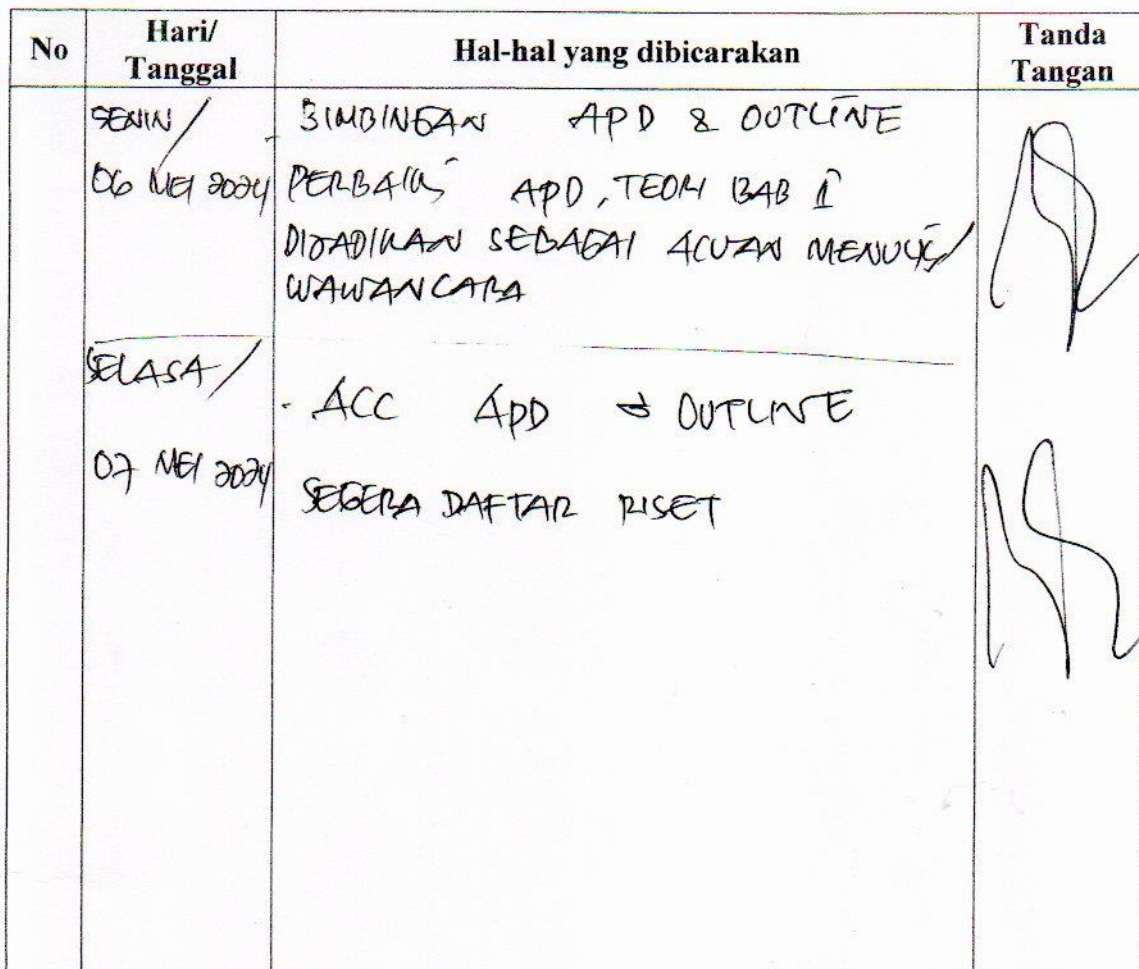 No
Hari/
Tanggal
Hal-hal yang dibicarakan
Tanda
Tangan
SENIN/
06 MEI 2024
- BIMBINGAN APD & OUTLINE
PERBAIKI APD, TEORI BAB II
DIJADIKAN SEBAGAI ACUAN MENULIS/
WAWANCARA
SELASA/
07 MEI 2024
- ACC APD & OUTLINE
SEGERA DAFTAR RISET